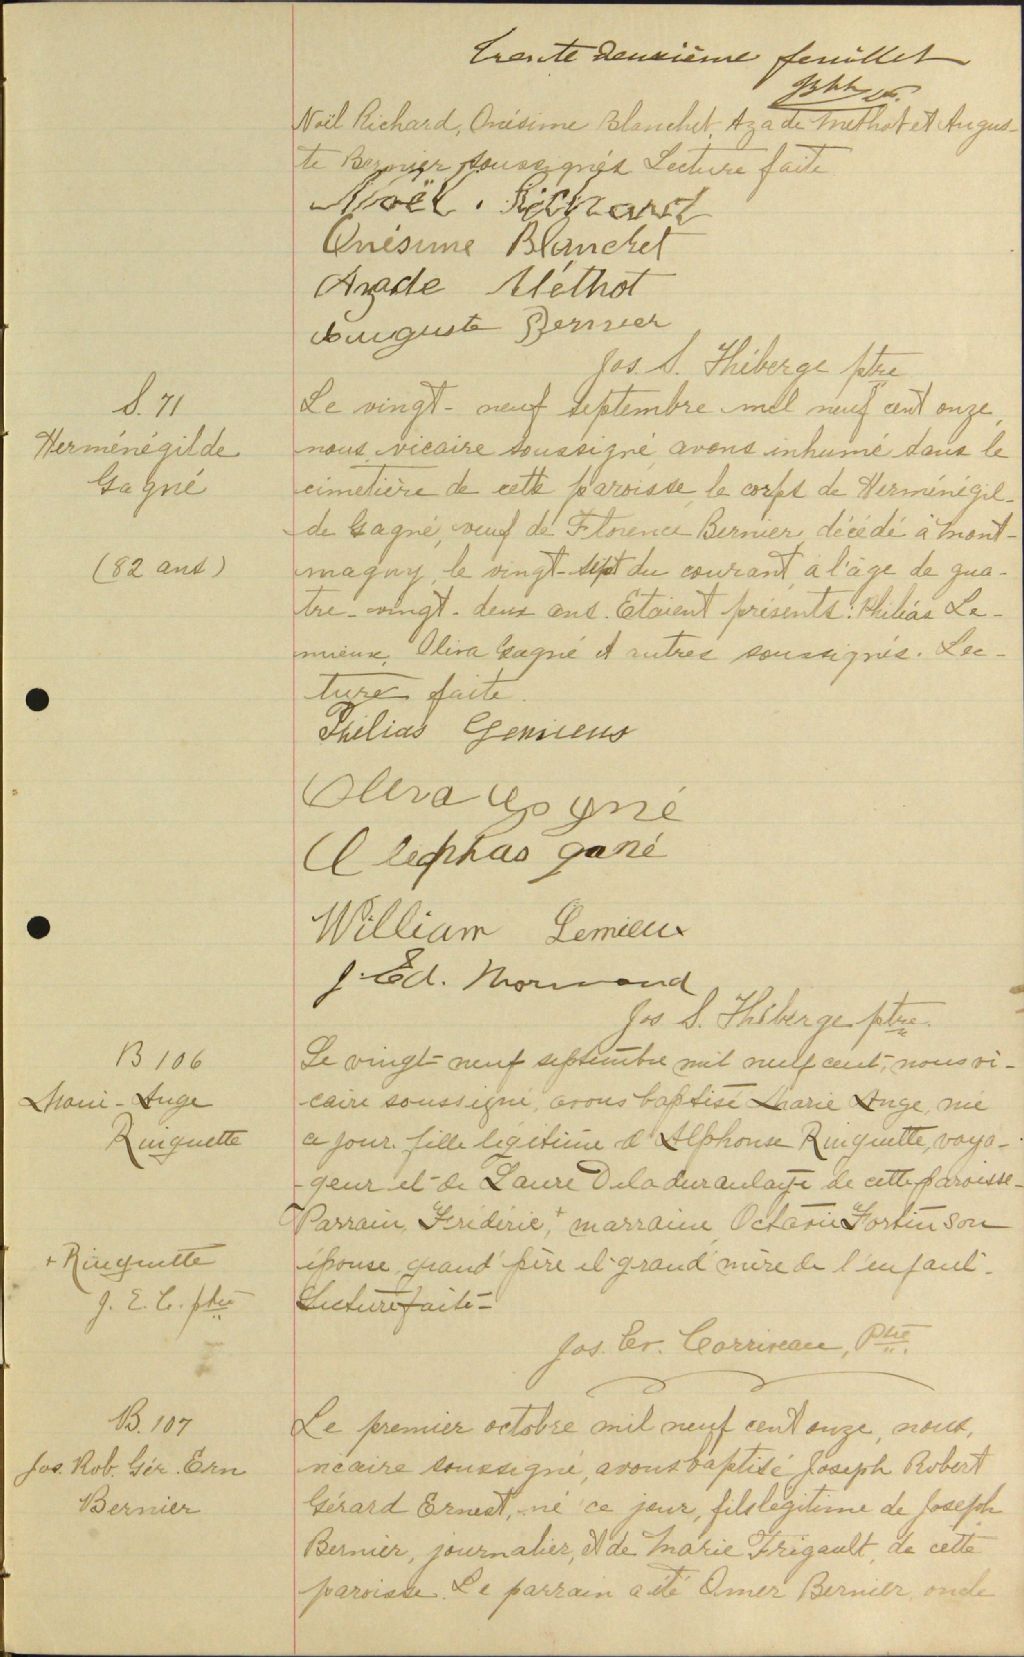 Trente deuxième feuillet
Noël Richard, Onésime Blanchet, Azade Méthot et Augus-
te Bernier, soussignés Lecture faite
Noël. Richard
Onésime Blanchet
Azade Méthot
Auguste Bernier
Jos. S. Théberge ptre
S. 71
Herménégilde
Gagné
(82 ans)
Le vingt-neuf septembre mil neuf cent onze,
nous vicaire soussigné, avons inhumé dans le
cimetière de cette paroisse, le corps de Herménégil-
de Gagné, veuf de Florence Bernier, décédé à Mont-
magny, le vingt-sept du courant, à l'âge de qua-
tre-vingt-deux ans. Etaient présents: Philias Le-
mieux, Oliva Gagné et autres soussignés. Lec-
ture faite.
Philias Lemieux
Oliva Gagné
Clephas gané
William Lemieux
J. Ed. Normand
Jos S. Théberge ptre.
B 106
Marie-Ange
Ringuette
Le vingt-neuf septembre mil neuf cent, nous vi-
caire soussigné, avons baptisé Marie Ange, née
ce jour, fille légitime d'Alphonse Ringuette, voya-
-geur et de Laure Deladurantaye de cette paroisse-
Parrain, Frédéric,+ marraine Octavie Fortin son
épouse, grand'père et grand'mère de l'enfant.
Lecture faite-
+ Ringuette
J. E. C. ptre
Jos. Ev. Corriveau, Ptre.
B. 107
Jos. Rob. Gér. Ern
Bernier
Le premier octobre mil neuf cent onze, nous,
vicaire soussigné, avons baptisé Joseph Robert
Gérard Ernest, né ce jour, fils légitime de Joseph
Bernier, journalier, et de Marie Frigault, de cette
paroisse. Le parrain a été Omer Bernier, oncle